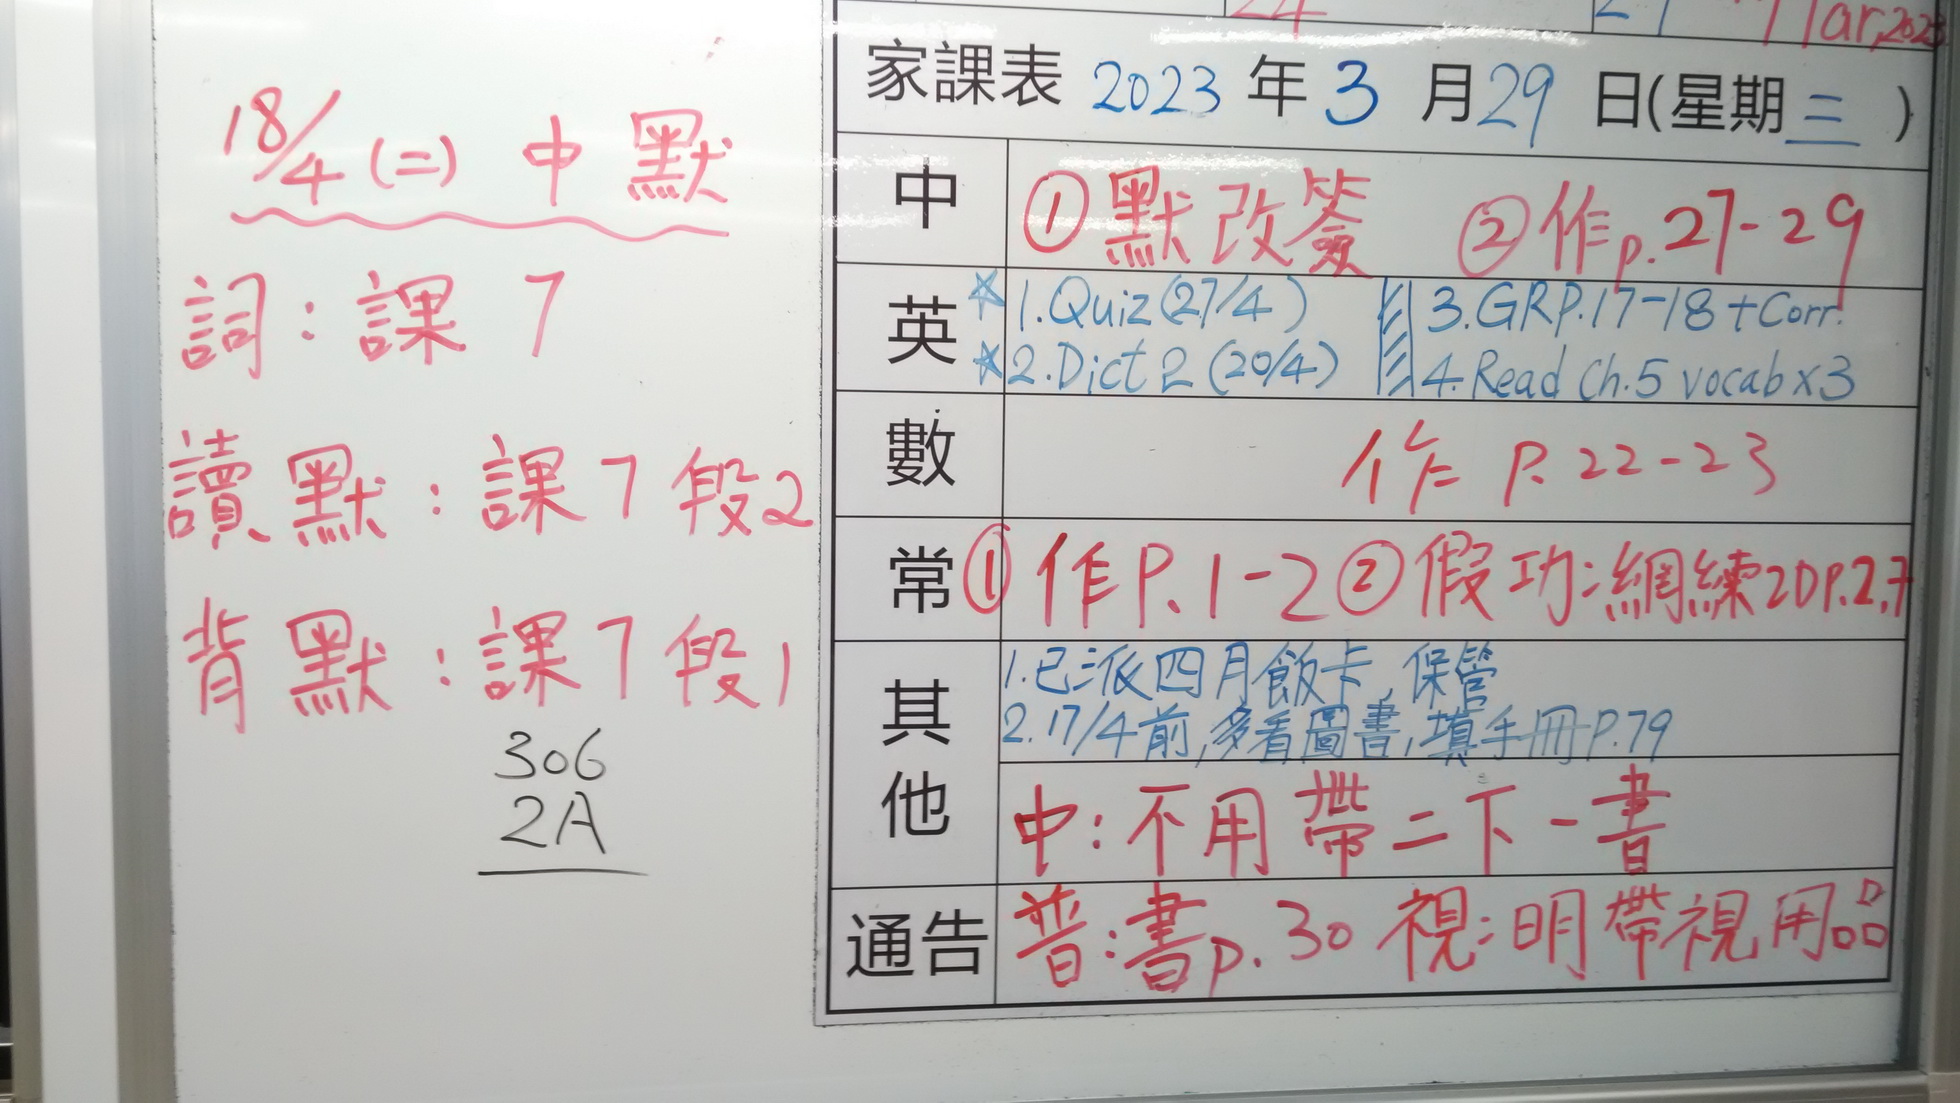 18/4 (二) 中默
詞：課7
讀默：課7段2
背默：課7段1
306
2A
家課表 2023 年 3 月 29 日(星期三)
中 ①默改簽 ②作p.27-29
英 ☆1.Quiz(27/4) 3.GRP.17-18+Corr.
☆2.Dict 2 (20/4) 4.Read Ch.5 vocab x3
數 作 P.22-23
常 ①作P.1-2 ②假功：網練20P.2,7
其他 1.已派四月飯卡,保管
2.17/4前,多看圖書,填手冊P.79
中：不用帶二下一書
通告 普：書p.30 視：明帶視用品